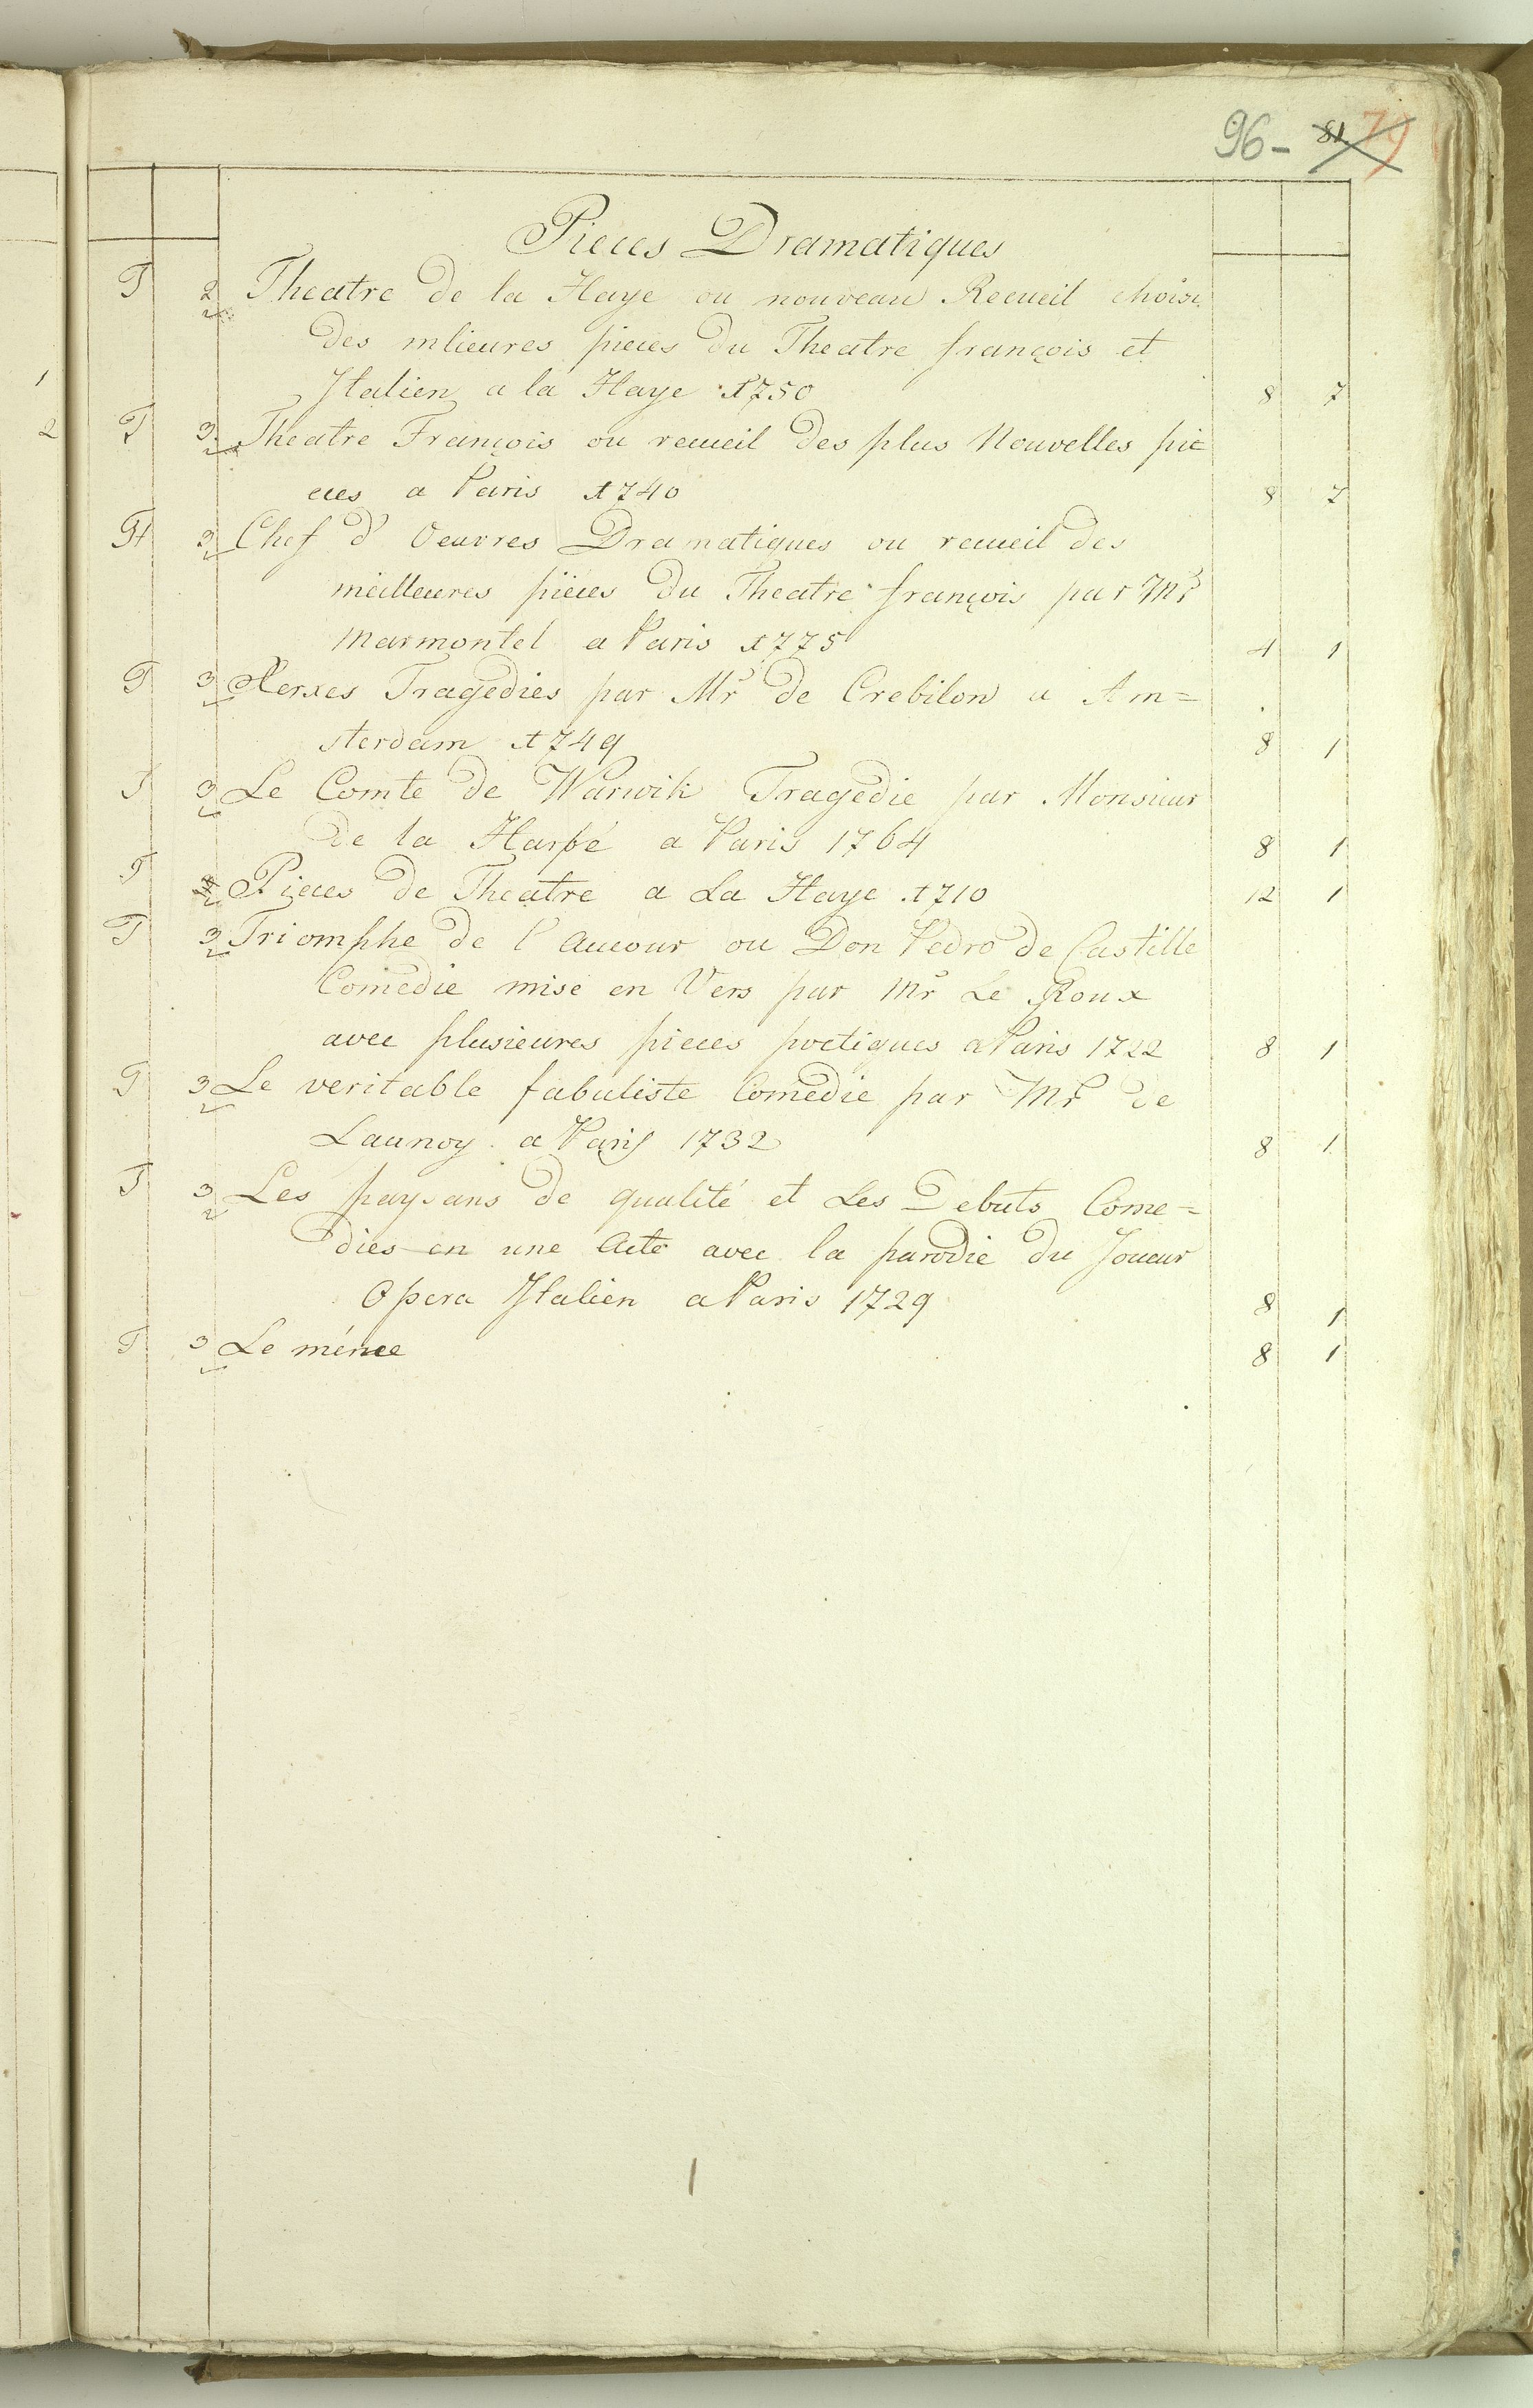 96- 81 79
Pieces Dramatiques
T 2 Theatre de la Haye ou nouveau Recueil choisi
des mlieures pieces du Theatre françois et
Italien a la Haye 1750 8 7
T 3 Theatre François ou recueil des plus Nouvelles pie
ces a Paris 1740 8 7
H 3 Chef d'Oeuvres Dramatiques ou recueil des
meilleures piéces du Theatre françois par Mr
Marmontel a Paris 1775 4 1
T 3 Xerxes Tragedies par Mr de Crebilon a Am=
sterdam 1749 8 1
T 3 Le Comte de Warwik Tragedie par Monsieur
de la Harpé a Paris 1764 8 1
T Pieces de Theatre a La Haye 1710 12 1
T 3 Triomphe de l'amour ou Don Pedro de Castille
Comedie mise en Vers par Mr Le Roux
avec plusieures pieces poetiques a Paris 1722 8 1
T 3 Le veritable fabuliste Comedie par Mr de
Launoy a Paris 1732 8 1
T 3 Les paysans de qualité et Les Debuts Come=
dies en une Acte avec la parodie du Joueur
Opera Italien a Paris 1729 8 1
T 3 Le méme 8 1
1
2